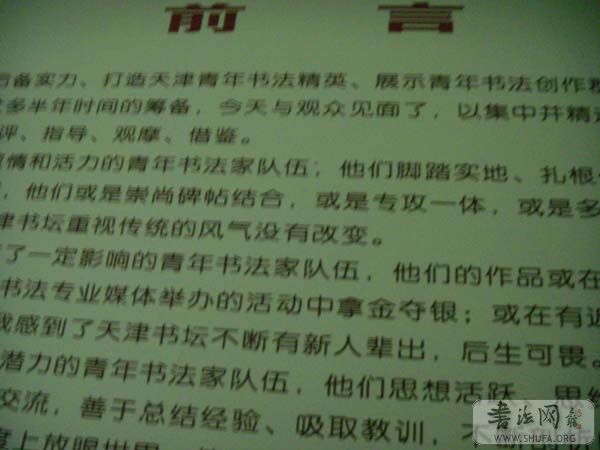 前言
后备实力、打造天津青年书法精英、展示青年书法创作
多半年时间的筹备，今天与观众见面了，以集中并精
评、指导、观摩、借鉴。
情和活力的青年书法家队伍；他们脚踏实地、扎根
，他们或是崇尚碑帖结合，或是专攻一体，或是多
津书坛重视传统的风气没有改变。
了一定影响的青年书法家队伍，他们的作品或在
书法专业媒体举办的活动中拿金夺银；或在有
我感到了天津书坛不断有新人辈出，后生可畏。
潜力的青年书法家队伍，他们思想活跃、思维
交流，善于总结经验、吸取教训，不断
度上放眼世界
书法网
WWW.SHUFA.ORG